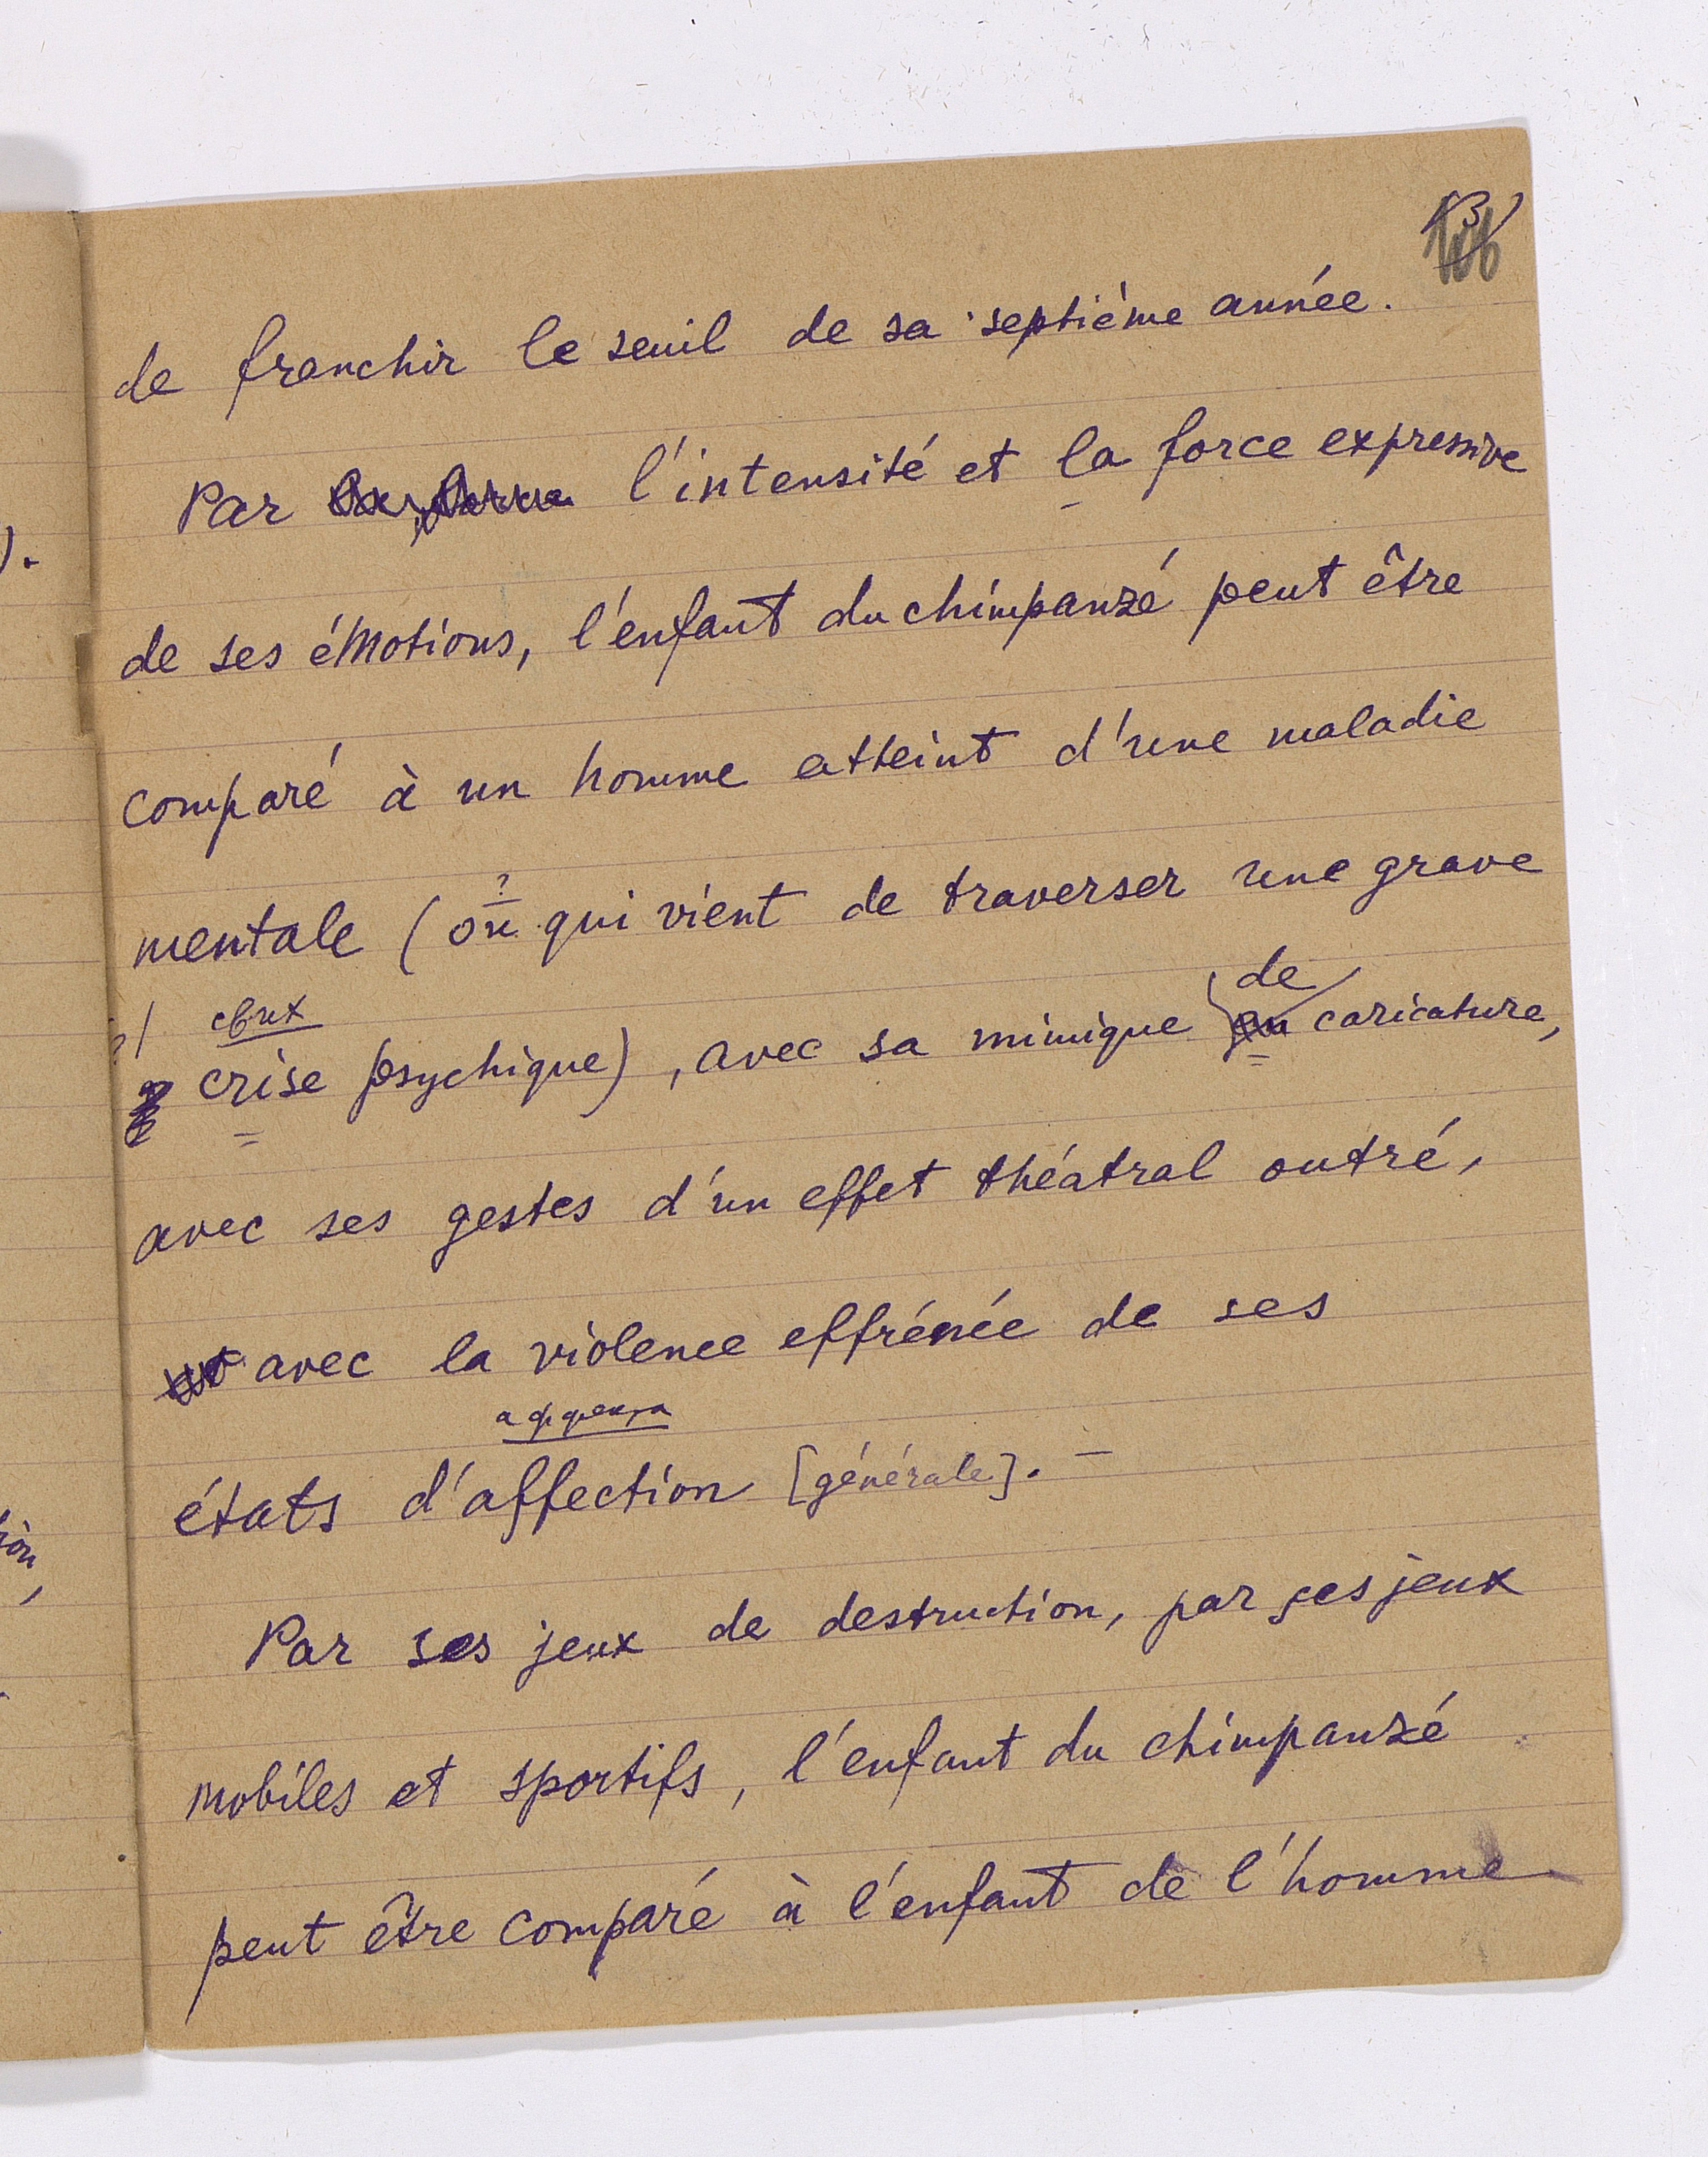 de franchir le seuil de sa septième année.
Par l'intensité et la force expressive
de ses émotions, l'enfant du chimpanzé peut être
comparé à un homme atteint d'une maladie
?
mentale (ou qui vient de traverser une grave
de
crise psychique), avec sa mimique caricature,
avec ses gestes d'un effet théatral outré,
avec la violence effrénée de ses
états d'affection [générale]. —
Par ses jeux de destruction, par ses jeux
mobiles et sportifs, l'enfant du chimpanzé
peut être comparé à l'enfant de l'homme